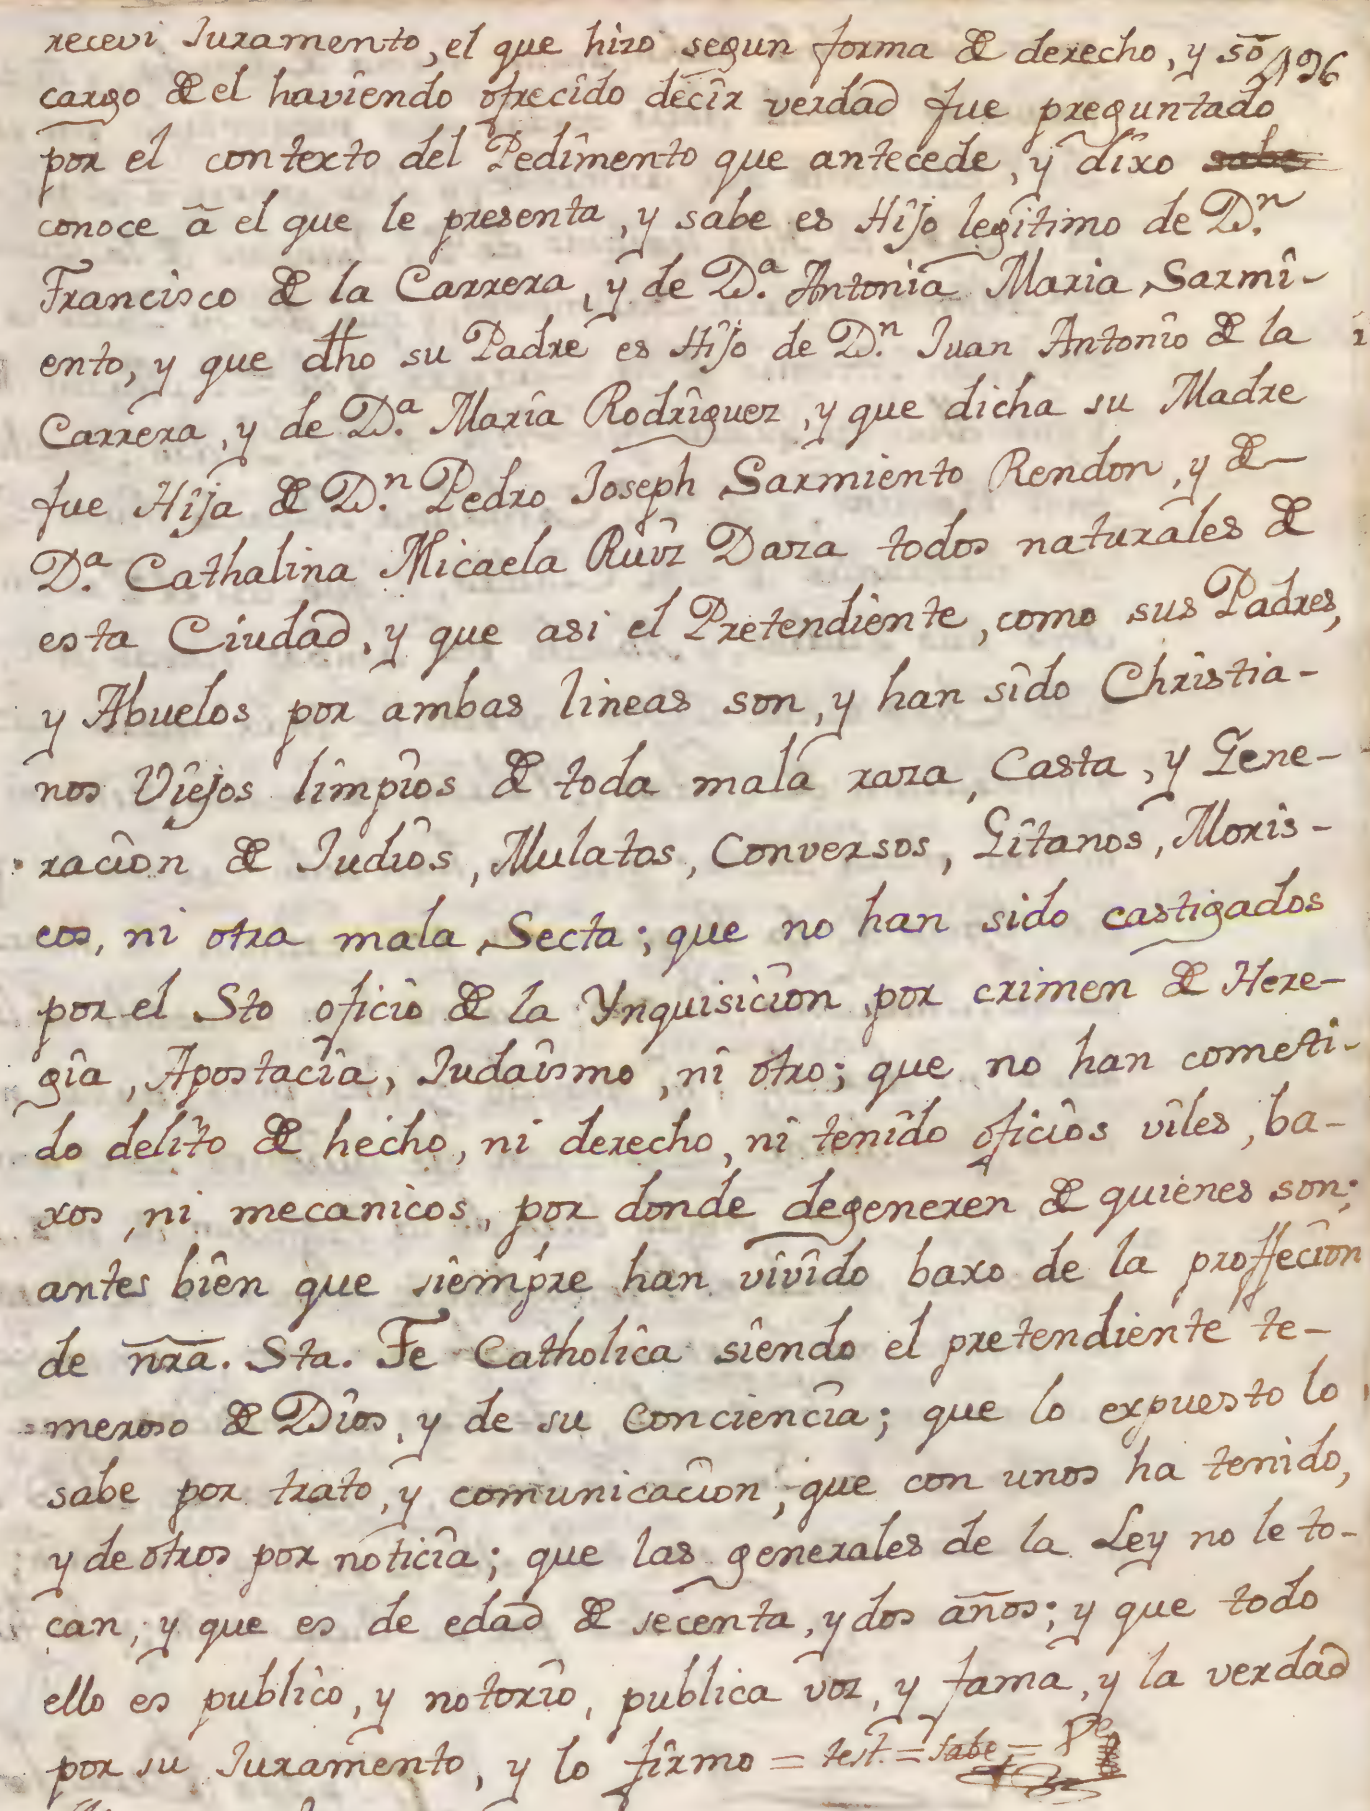 recevi Juramento, el que hizo segun forma de derecho, y so
196
cargo de el haviendo ofrecido decir verdad fue preguntado
por el contexto del Pedimento que antecede, y dixo sabe
conoce â el que le presenta, y sabe es Hijo legitimo de D.n
Francisco de la Carrera, y de D.a Antonia Maria Sarmi-
ento, y que dho su Padre es Hijo de D.n Juan Antonio de la
Carrera, y de D.a Maria Rodriguez, y que dicha su Madre
fue Hija de D.n Pedro Joseph Sarmiento Rendon, y de
D.a Cathalina Micaela Ruiz Daza todos naturales de
esta Ciudad, y que asi el Pretendiente, como sus Padres,
y Abuelos por ambas lineas son, y han sido Christia-
nos Viejos limpios de toda mala raza, Casta, y Gene-
racion de Judios, Mulatos, Conversos, Gitanos, Moris-
cos, ni otra mala Secta; que no han sido castigados
por el Sto oficio de la Ynquisicion por crimen de Here-
gia, Apostacia, Judaismo, ni otro; que no han cometi-
do delito de hecho, ni derecho, ni tenido oficios viles, ba-
xos, ni mecanicos, por donde degeneren de quienes son;
antes bien que siempre han vivido baxo de la proffecion
de nra. Sta. Fe Catholica siendo el pretendiente te-
meroso de Dios, y de su Conciencia; que lo expuesto lo
sabe por trato, y comunicacion, que con unos ha tenido,
y de otros por noticia; que las generales de la Ley no le to-
can, y que es de edad de secenta, y dos años; y que todo
ello es publico, y notorio, publica voz, y fama, y la verdad
por su Juramento, y lo firmo = test. = sabe =